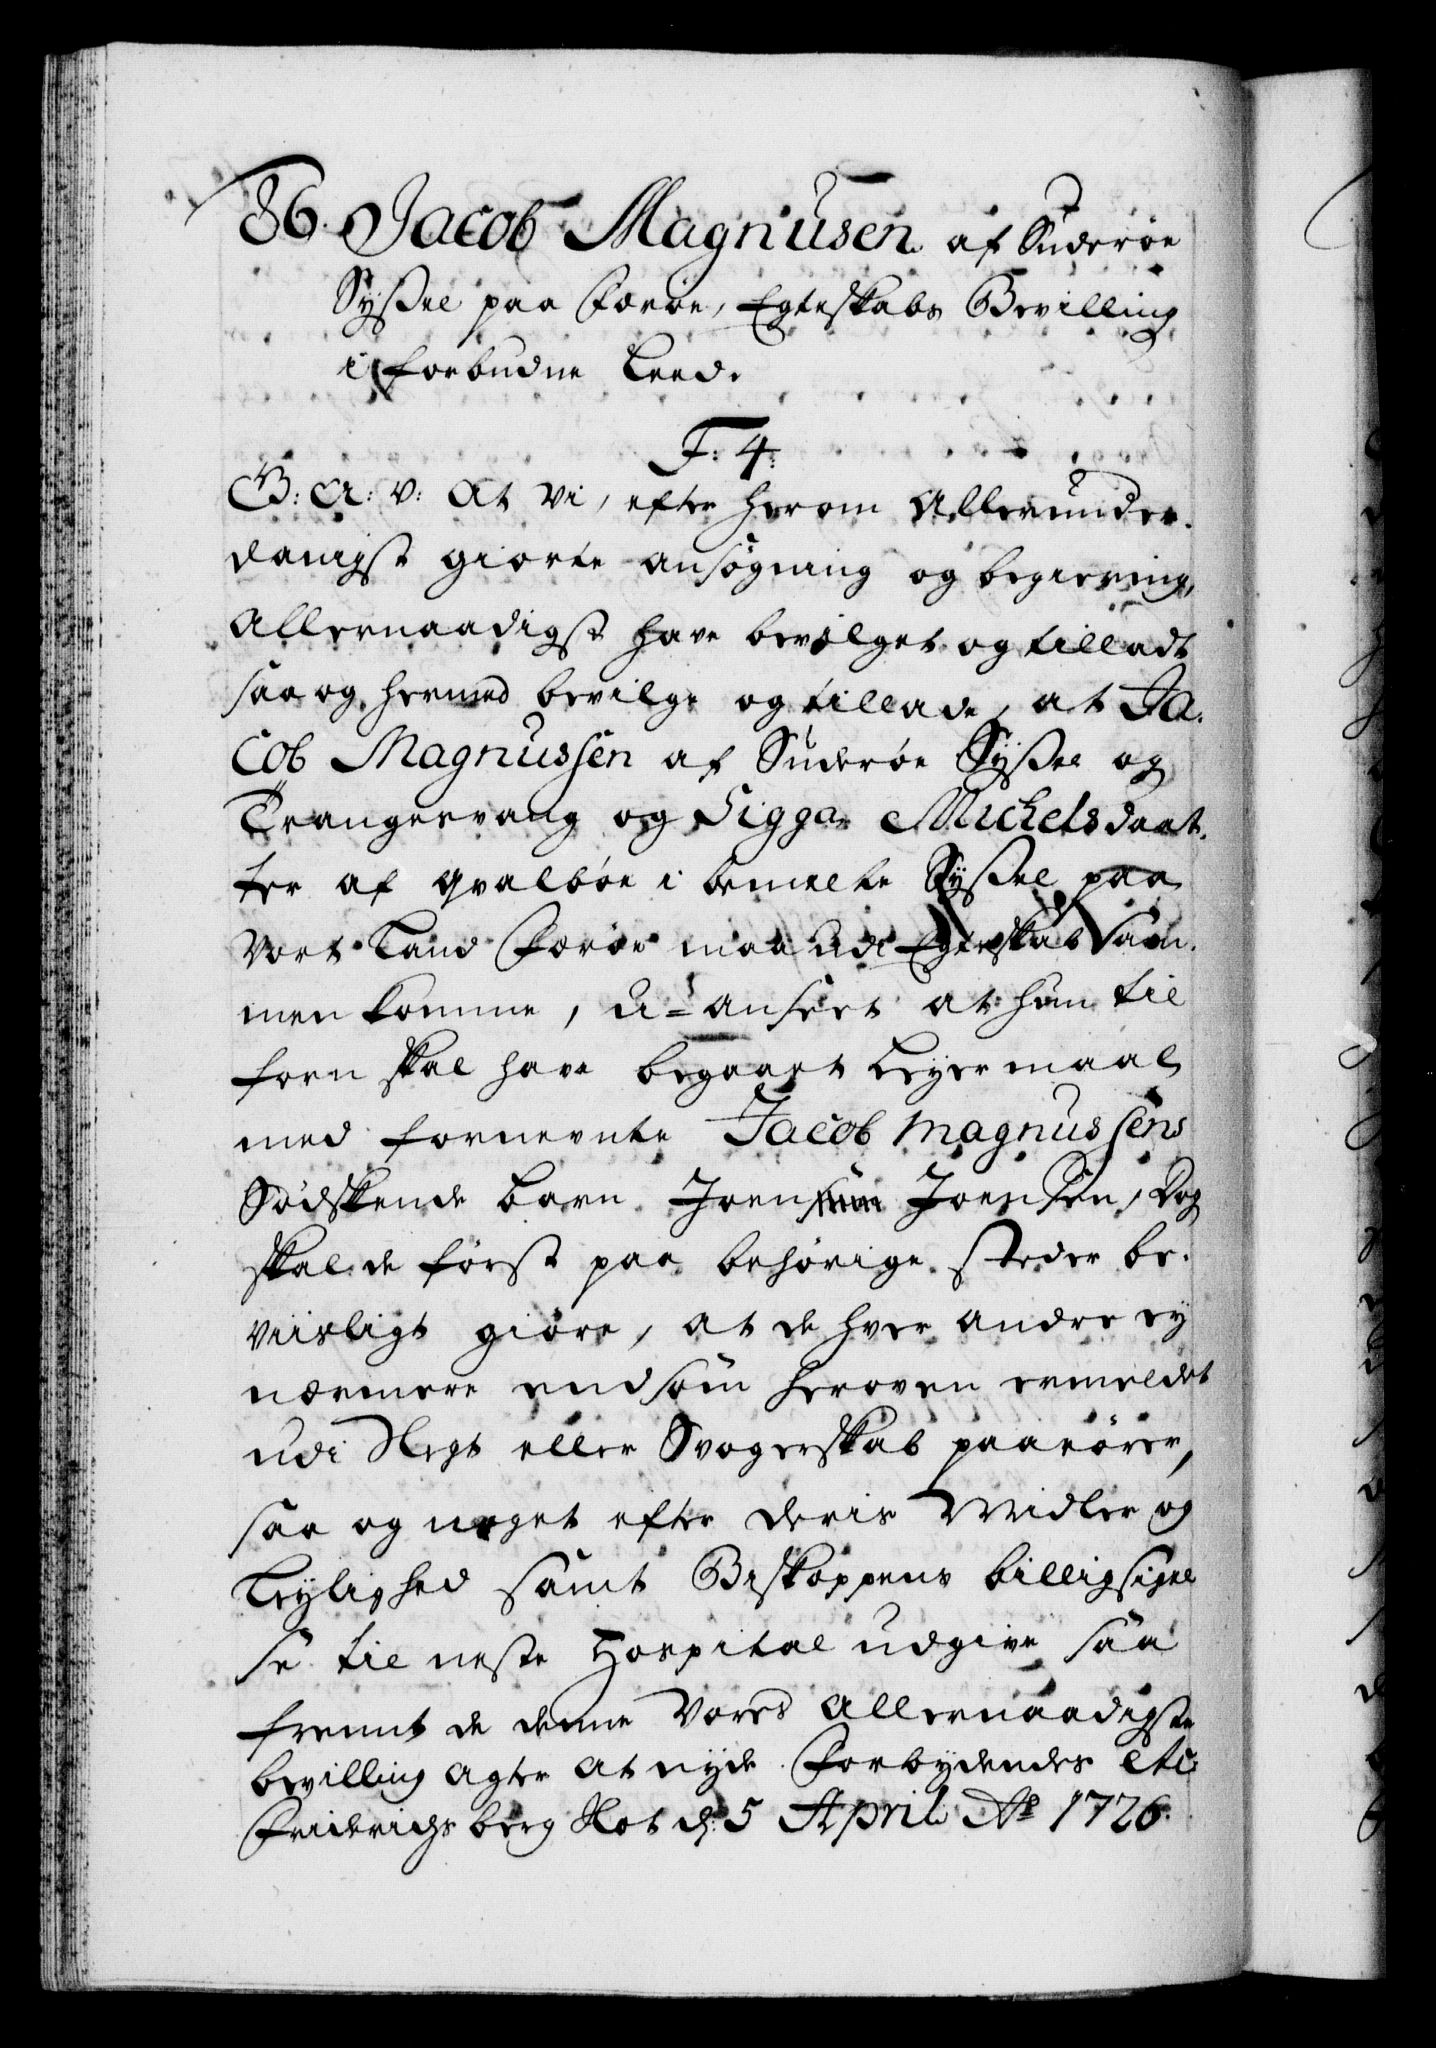 86. Jacob Magnusen af Suderøe
Syßel paa Færøe, Egteskabs Bevilling
i forbudne Leed.
F: 4.
G: A: V: At Vi, efter herom Allerunder-
danigst giorte ansøgning og begiering,
Allernaadigst have bevilget og tilladt
saa og hermed bevilge og tillade, at Ja-
cob Magnussen af Suderøe Syßel og
Trangesvang og Sigga Michelsdaat-
ter af Qvalbøe i bemelte Syßel paa
Vort Land Færøe maa udi Egteskab sam-
men komme, u-anseet at hun til
forn skal have begaaet Leyermaal
med fornevnte Jacob Magnussens
Sødskende barn Joen Joensen, Dog
skal de først paa behørige steder be-
viisligt giøre, at de hver andre ey
nærmere end som heroven ermeldet
udi Slegt eller Svogerskab paarører,
saa og noget efter deris Midler og
Leylighed samt Biskoppens billigsigel
se til neste Hospital udgive saa
fremt de denne Vores allernaadigste
bevilling agter at nyde. Forbydendes etc:
Friderichsberg Slot d: 5 April Ao 1726.